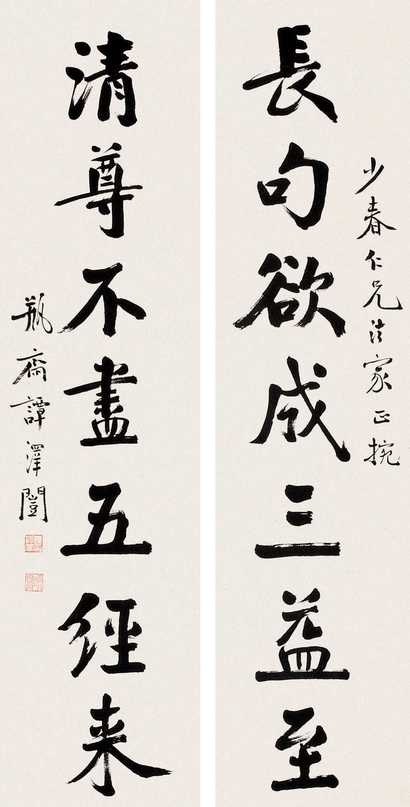 少春仁兄法家正捥
長句欲成三益至
清尊不盡五經來
瓶齋譚澤闓